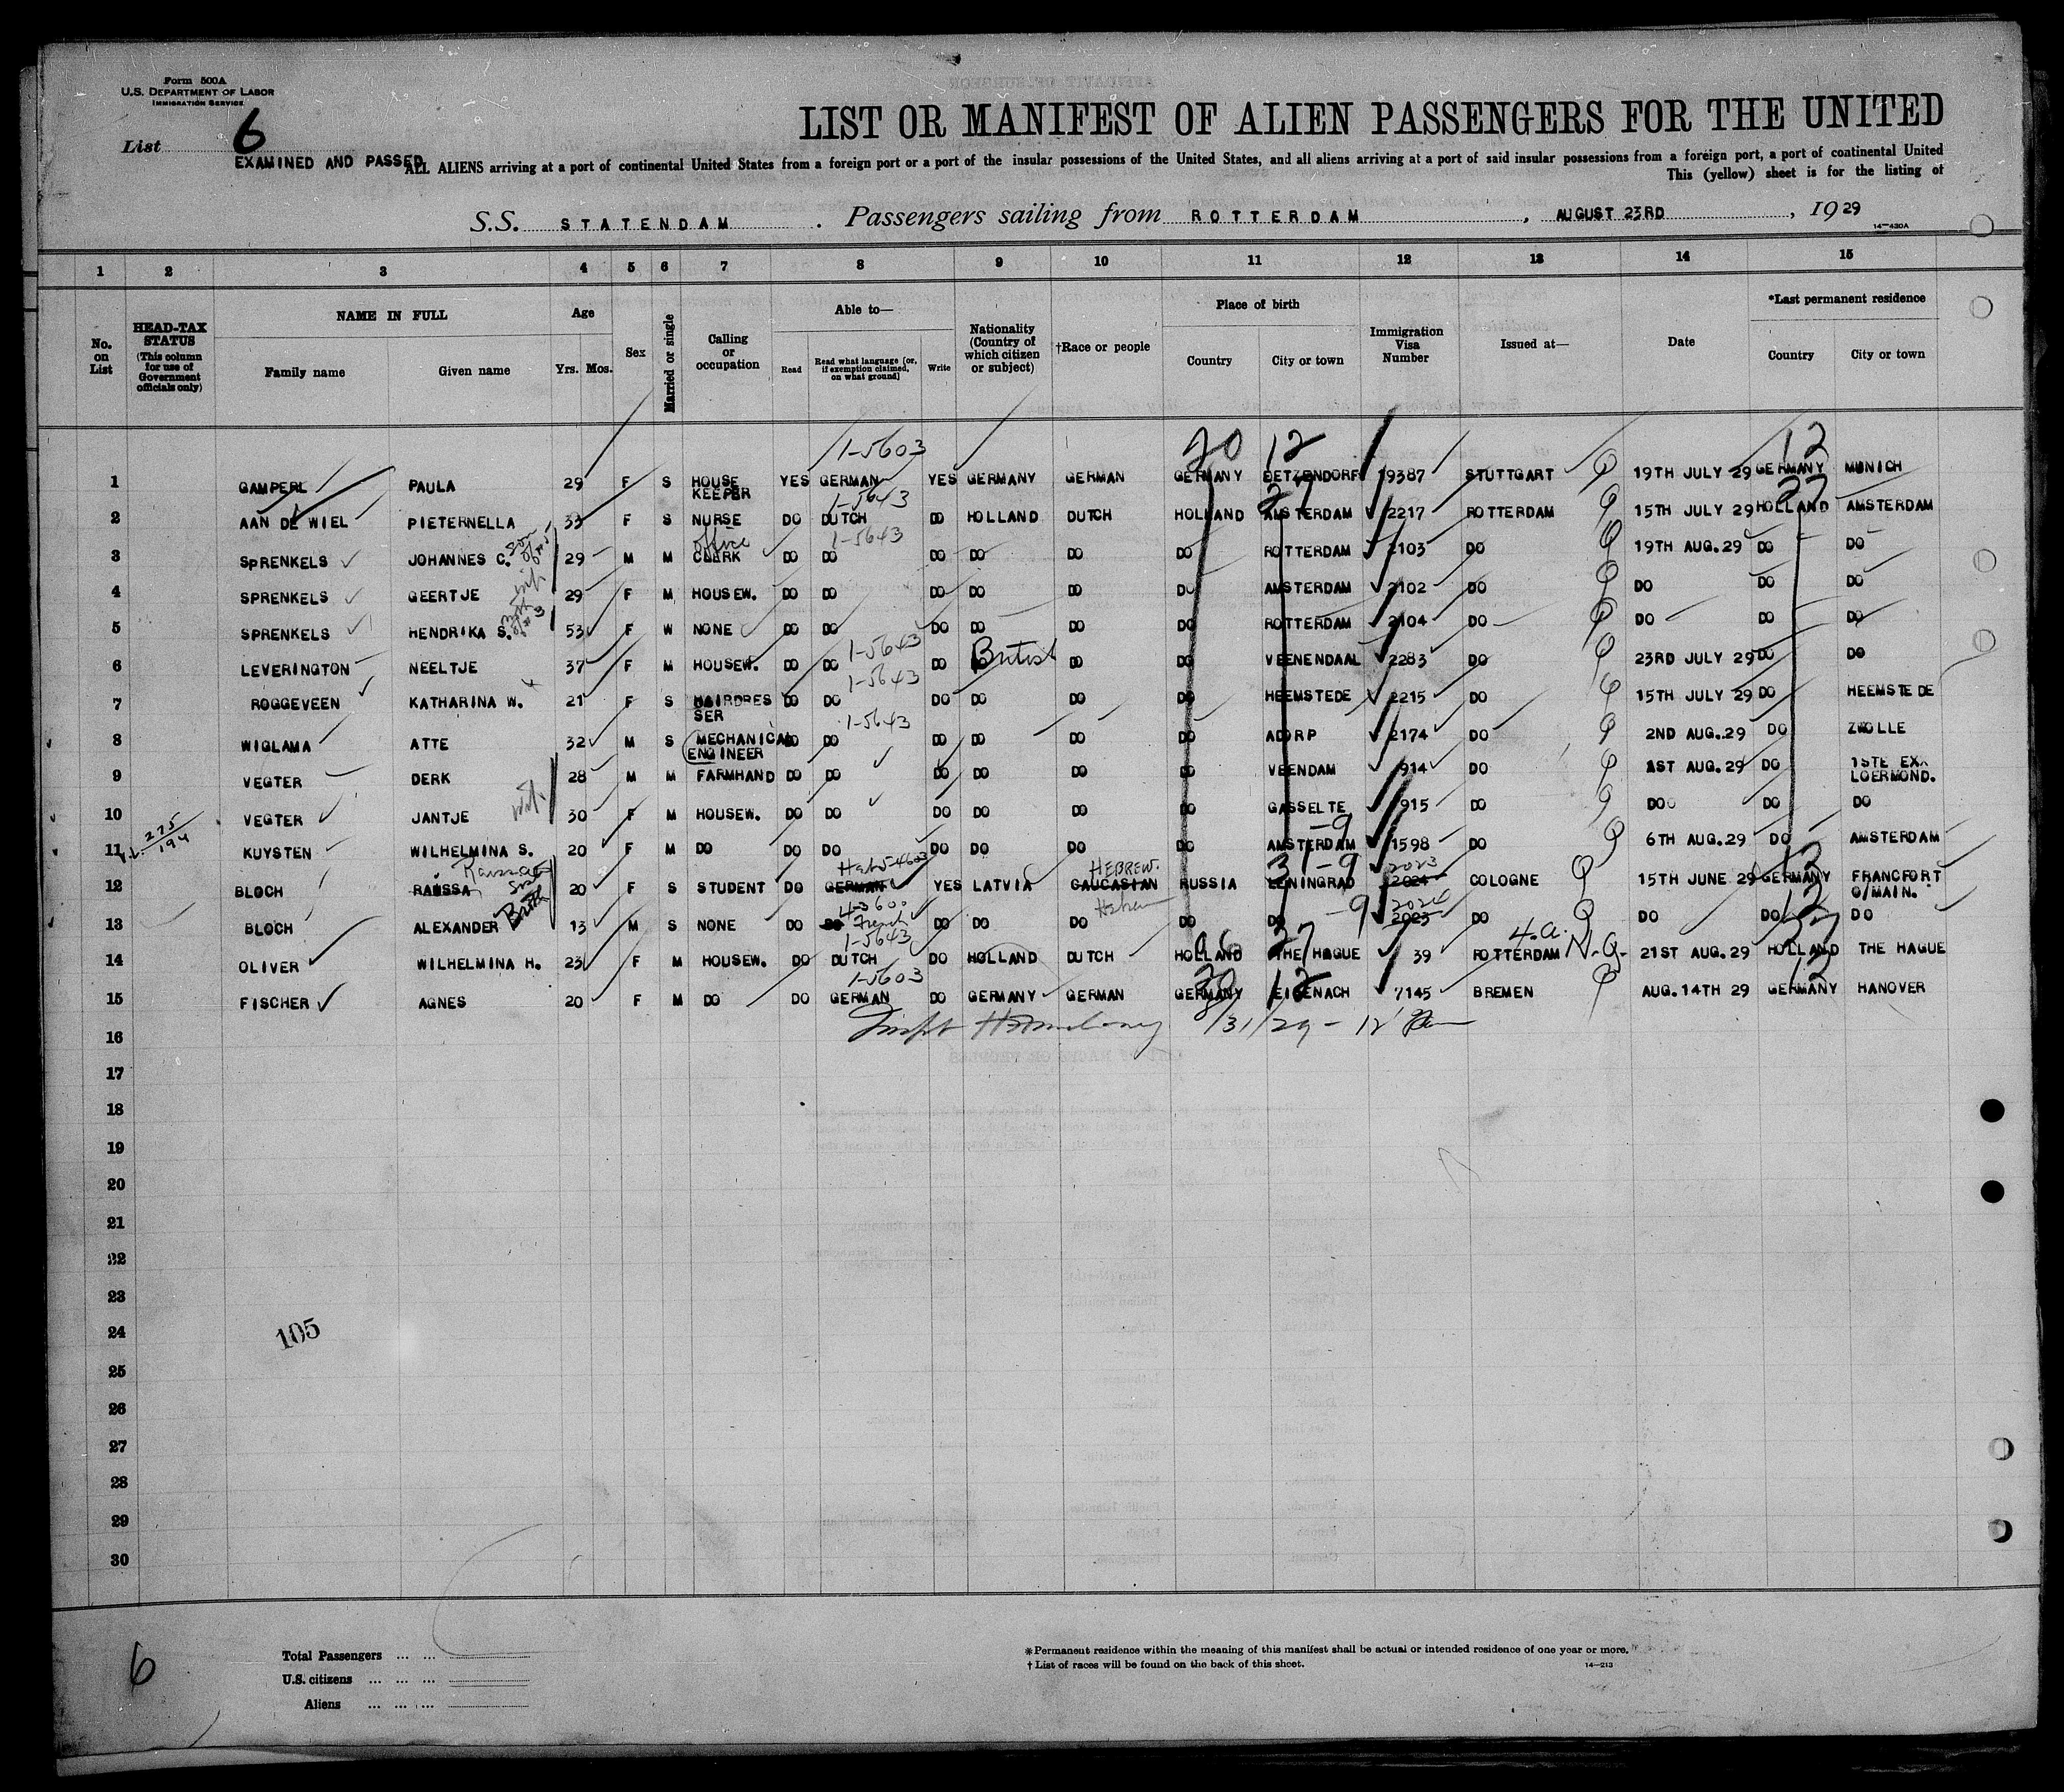 Form 500A
U.S. DEPARTMENT OF LABOR
IMMIGRATION SERVICE
List 6
LIST OR MANIFEST OF ALIEN PASSENGERS FOR THE UNITED
EXAMINED AND PASSED
ALL ALIENS arriving at a port of continental United States from a foreign port or a port of the insular possessions of the United States, and all aliens arriving at a port of said insular possessions from a foreign port, a port of continental United
This (yellow) sheet is for the listing of
S.S. STATENDAM . Passengers sailing from ROTTERDAM , AUGUST 23RD , 1929
14—430A
1 2 3 4 5 6 7 8 9 10 11 12 13 14 15
No. on List
HEAD-TAX STATUS (This column for use of Government officials only)
NAME IN FULL
Family name Given name
Age
Yrs. Mos.
Sex
Married or single
Calling or occupation
Able to—
Read
Read what language [or, if exemption claimed, on what ground]
Write
Nationality (Country of which citizen or subject)
†Race or people
Place of birth
Country City or town
Immigration Visa Number
Issued at—
Date
*Last permanent residence
Country City or town
1-5603 20 12 12
1 GAMPERL PAULA 29 F S HOUSE KEEPER YES GERMAN YES GERMANY GERMAN GERMANY DETZENDORF 19387 STUTTGART 19TH JULY 29 GERMANY MUNICH
1-5643 27 27
2 AAN DE WIEL PIETERNELLA 33 F S NURSE DO DUTCH DO HOLLAND DUTCH HOLLAND AMSTERDAM 2217 ROTTERDAM 15TH JULY 29 HOLLAND AMSTERDAM
son of #5 office 1-5643
3 SPRENKELS JOHANNES C. 29 M M CLERK DO DO DO DO DO DO ROTTERDAM 2103 DO 19TH AUG.29 DO DO
wife
4 SPRENKELS GEERTJE 29 F M HOUSEW. DO DO DO DO DO DO AMSTERDAM 2102 DO DO DO DO
moth of #3
5 SPRENKELS HENDRIKA S. 53 F W NONE DO DO DO DO DO DO ROTTERDAM 2104 DO DO DO DO
1-5643 British
6 LEVERINGTON NEELTJE 37 F M HOUSEW. DO DO DO DO DO DO VEENENDAAL 2283 DO 23RD JULY 29 DO DO
1-5643
7 ROGGEVEEN KATHARINA W. 21 F S HAIRDRES SER DO DO DO DO DO DO HEEMSTEDE 2215 DO 15TH JULY 29 DO HEEMSTEDE
1-5643
8 WIGLAMA ATTE 32 M S MECHANICAL ENGINEER DO DO DO DO DO DO ADORP 2174 DO 2ND AUG.29 DO ZWOLLE
9 VEGTER DERK 28 M M FARMHAND DO DO DO DO DO DO VEENDAM 914 DO 1ST AUG.29 DO 1STE EXX LOERMOND.
wife
10 VEGTER JANTJE 30 F M HOUSEW. DO DO DO DO DO DO GASSELTE 915 DO DO DO DO
275/194 -9
11 KUYSTEN WILHELMINA S. 20 F M DO DO DO DO DO DO DO AMSTERDAM 1598 DO 6TH AUG.29 DO AMSTERDAM
HEBREW. 31 -9 2023 12
12 BLOCH RAUSSA 20 F S STUDENT DO GERMAN YES LATVIA CAUCASIAN RUSSIA LENINGRAD 2024 COLOGNE 15TH JUNE 29 GERMANY FRANCFORT O/MAIN.
Broth French -9 2024 12
13 BLOCH ALEXANDER 13 M S NONE DO DO DO DO DO DO DO 2023 DO DO DO DO
1-5643 27 4.a. N.Q. 27
14 OLIVER WILHELMINA H. 23 F M HOUSEW. DO DUTCH DO HOLLAND DUTCH HOLLAND THE HAGUE 39 ROTTERDAM 21ST AUG.29 HOLLAND THE HAGUE
1-5603 20 12 12
15 FISCHER AGNES 20 F M DO DO GERMAN DO GERMANY GERMAN GERMANY EISENACH 7145 BREMEN AUG.14TH 29 GERMANY HANOVER
8/31/29 - 12
16
17
18
19
20
21
22
23
24
105
25
26
27
28
29
30
6
Total Passengers
U.S. citizens
Aliens
*Permanent residence within the meaning of this manifest shall be actual or intended residence of one year or more.
†List of races will be found on the back of this sheet.
14—213